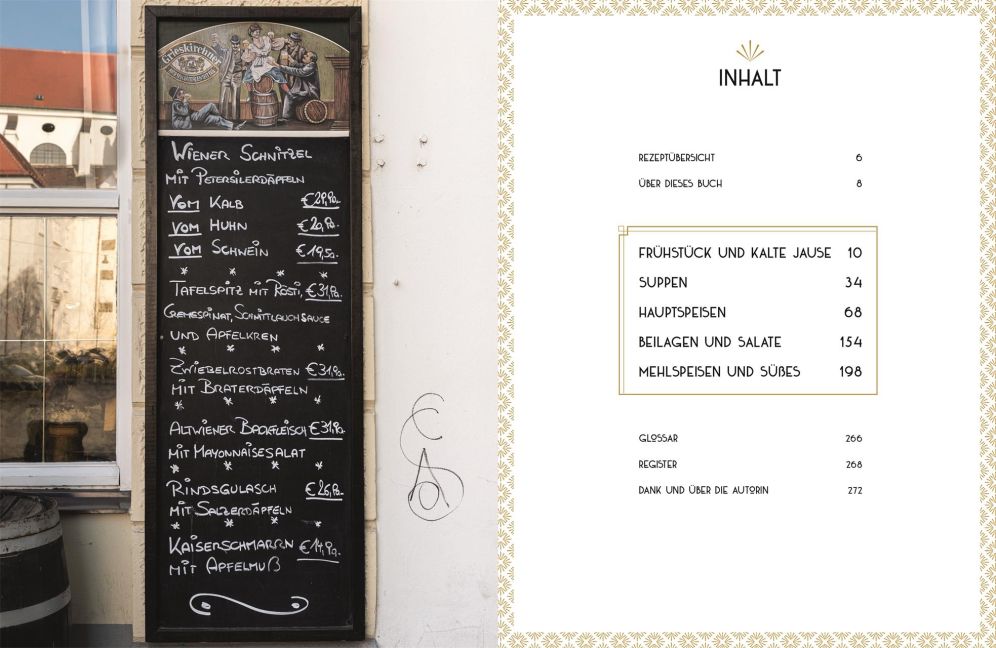 Grieskirchner
WIENER SCHNITZEL
MIT PETERSILERDÄPFELN
VOM KALB €29,90.-
VOM HUHN €20,90.-
VOM SCHWEIN €19,50.-
* * * *
TAFELSPITZ MIT RÖSTI, €31,90.-
CREMESPINAT, SCHNITTLAUCHSAUCE
UND APFELKREN
* * * *
ZWIEBELROSTBRATEN €31,90.-
MIT BRATERDÄPFELN
* * * *
ALTWIENER BACKFLEISCH €31,90.-
MIT MAYONNAISESALAT
* * * *
RINDSGULASCH €26,90.-
MIT SALZERDÄPFELN
* * * *
KAISERSCHMARRN €14,90.-
MIT APFELMUß
INHALT
REZEPTÜBERSICHT 6
ÜBER DIESES BUCH 8
FRÜHSTÜCK UND KALTE JAUSE 10
SUPPEN 34
HAUPTSPEISEN 68
BEILAGEN UND SALATE 154
MEHLSPEISEN UND SÜßES 198
GLOSSAR 266
REGISTER 268
DANK UND ÜBER DIE AUTORIN 272